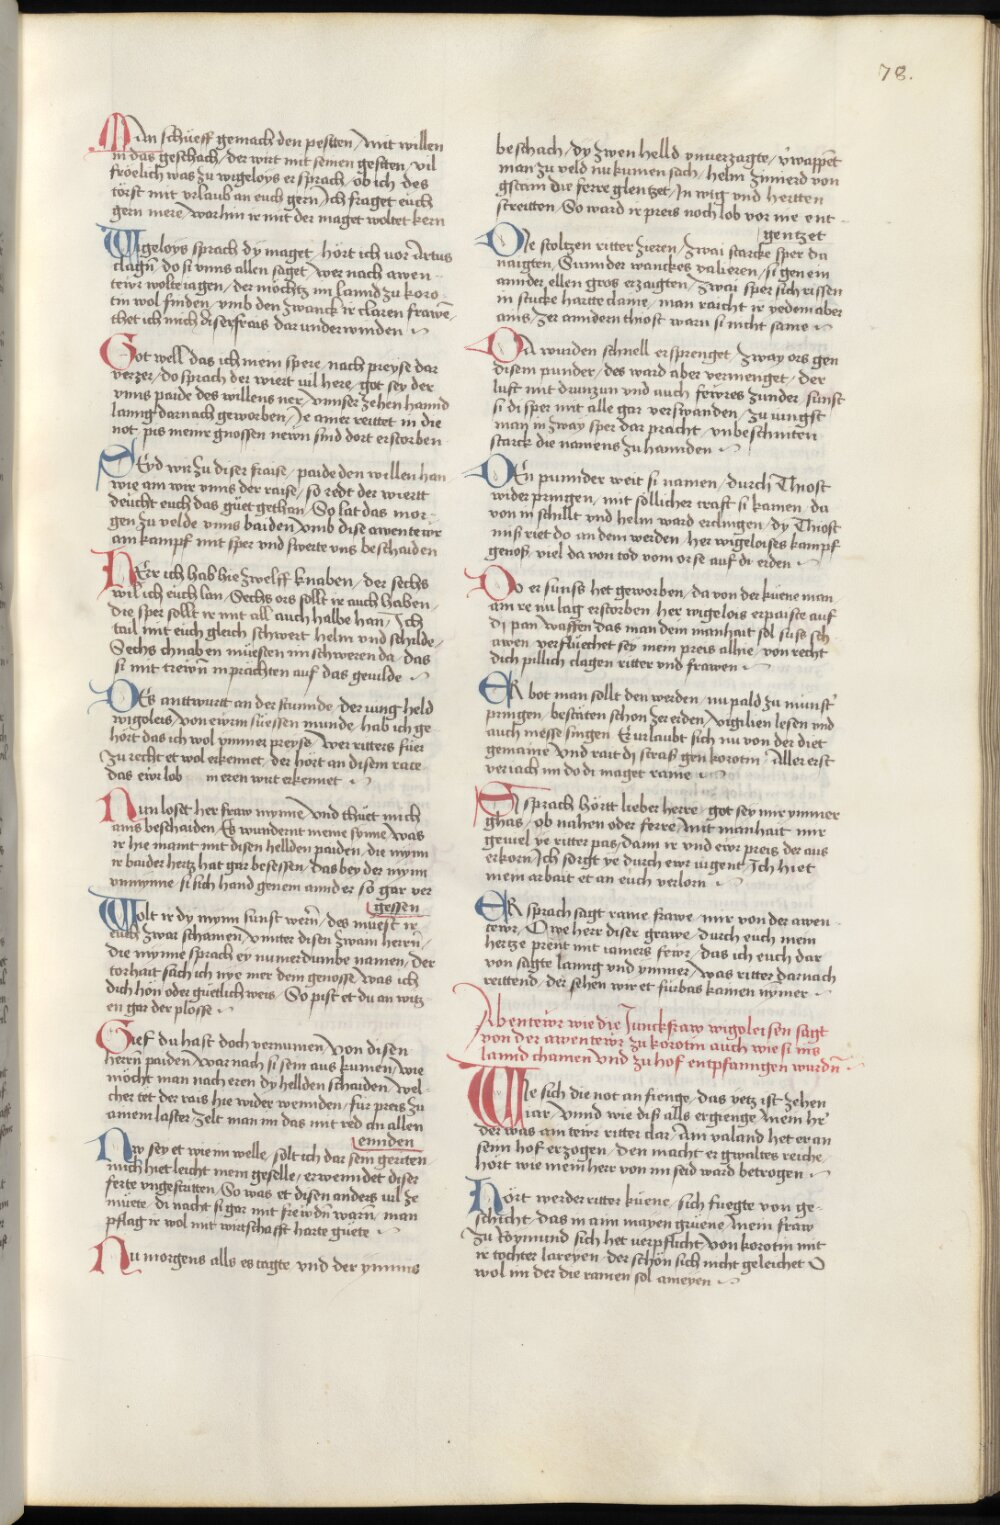 78.
Man schüeff gemach den pesten / mit willen
in das geschach / der wirt mit seinen gesten / vil
fröelich was zu wigeloys er sprach / ob ich des
törst mit vrlaub an euch gern / Ich fraget euch
gern mere / warhin ir mit der maget woltet kern
Wigeloys sprach dy maget / hört ich vor Artus
clagn̄ / do si vnns allen saget / wer nach awen-
tewr wolte iagen / der möchtz im lannd zu koro-
tin wol finden / vmb den zwanck ir claren frawē /
thet ich mich diser frais dar underwinden
Got well das ich mein spere / nach preyse dar
verzer / do sprach der wiert vil here / got sey der
vnns paide des willens ner / vnnser zehen hannd
lanng darnach geworben / Je ainer reittet in die
not pis meinr gnossen newn sind dort erstorben
Seyd wir zu diser fraise / paide den willen han
wie am wir vnns der raise / so redt der wiertt
deücht euch das güet gethan / So lat das mor-
gen zu velde vnns baiden / vmb dise awentewr
am kampf mit sper vnd swerte vns beschaiden
Herr ich hab hie zwelff knaben / der sechs
wil ich euch lan / Sechs ors sollt ir auch haben /
die sper sollt ir mit all auch halbe han / Ich
tail mit euch gleich schwert helm vnd schilde /
Sechs chnaben müesten im schweren da / das
si mit trewn̄ im prächten auf das gevilde
Des anttwurtt an der stunnde / der iung held
wigoleis / von ewrm süessen munde / hab ich ge
hört das ich wol ymmer preyse / wer ritters füer
zu recht et wol erkennet / der hört an disem rate
das ewr lob in eren wirt erkennet
Nun loset her fraw mynne / vnd thüet mich
ains beschaiden / Es wundernt meine synne / was
ir hie maint mit disen hellden paiden / die mynn
ir baider hertz hat gar besessen / das bey der mynn
vnmynne si sich hand genem annder so gar ver
gessen
Wolt ir dy mynn sunst wern̄ / des müest ir
euch zwar schamen / vnnter disen zwain herrn̄ /
die mynne sprach ey numerdumbe namen / der
torhait sach ich nye mer dem genosse / was ich
dich hön oder güetlich weis / So pist et du an witz
en gar der plosse
Sief du hast doch vernumen / von disen
herrn̄ paiden / war nach si sein aus kumen / wie
möcht man nach eren dy hellden schaiden / wel-
cher tet der rais hie wider wennden / für preis zu
ainem laster zelt man im das mit red an allen
ennden
Nw sey et wie im welle / solt ich dar sein geriten
mich hiet leicht mein geselle / erwenndet diser
ferte vngestritten / So was et disen anders vil ze
müete / di nacht si gar mit frewdn̄ warn̄ / man
pflag ir wol mit wirtschafft harte güete
Nu morgens alls es tagte vnd der ymmis
beschach / dy zwen helld vnuerzagte / v̄wappēt
man zu veld nu kumen sach / helm zimierd von
gstain die ferre glentzet / In wig vnd hertten
streitten / So ward ir preis noch lob vor nie ent-
gentzet
Die stoltzen ritter zieren / zwai starcke sper da
naigten / Sunnder wanckes valieren / si gen ein
annder ellen gros erzaigten / zwai sper sich rissen
in stucke hartte claine / man raicht ir yedem aber
ains / zer anndern thiost warn si nicht saine
Da wurden schnell ersprenget / zway ors gen
disem punder / des ward aber vermenget / der
luft mit drunzun vnd auch fewres zunder / sunst
si di sper mit alle gar verswanden / zu vngst
man in zway sper dar pracht / vnbeschniten
starck die namens zu hannden
Den punnder weit si namen / durch Thiost
wider pringen / mit sollicher craft si kamen / da
von in schillt vnd helm ward erclingen / dy Thiost
miß riet do an dem werden / her wigeloises kampf
genoß / viel da von tod vom orse auf di erden
Do er sunss het geworben / da von der küene man
am re nu lag erstorben / her wigelois erpaiste auf
di pan / waffen das man dem manhait sol suss sch
awen / verflüechet sey mein preis alhie / von recht
dich pillich clagen ritter vnd frawen
Er bot man sollt den werden / nu pald zu münst'
pringen / bestäten schon zer erden / vigilien lesen vnd
auch messe singen / Er urlaubt sich nu von der diet
gemaine / vnd rait di straß gen korotin / Allererst
veriach im do di maget raine
Si sprach hörtt lieber herre / got sey mir ymmer
ghas / ob nahen oder ferre / mit manhait mir
geviel ye ritter pas / dann ir vnd ewr preis der aus
erkorn / Ich sorgt ye durch ewr iugent / Ich hiet
mein arbait et an euch verlorn
Er sprach sagt raine frawe / mir von der awen
tewr / O we herr diser grawe / durch euch mein
hertze prent mit iamers fewr / das ich euch dar
von sagte lanng vnd ymmer / was ritter darnach
reittend / der sehen wir et fürbas kainen nymer
Abentewr wie die Junckfraw wigoleisen sagt
von der awentewr zu korotin auch wie si ins
lannd chamen vnd zu hof entpfanngen wurdn̄
Wie sich die not an fienge / das yetz ist zehen
iar / vnnd wie diß alls ergienge / mein hr̄
der was ain tewr ritter clar / Am valand het er an
seim hof erzogen / den macht er gwaltes reiche /
hört wie mein herr von im seid ward betrogen
Hört werder ritter küene / sich fuegte von ge-
schicht / das in aim mayen grüene / mein fraw
zu Röymund sich het verpflicht / von korotin mit
ir tochter lareyen / der schön sich nicht geleichet D
wol im der die rainen sol ameyen